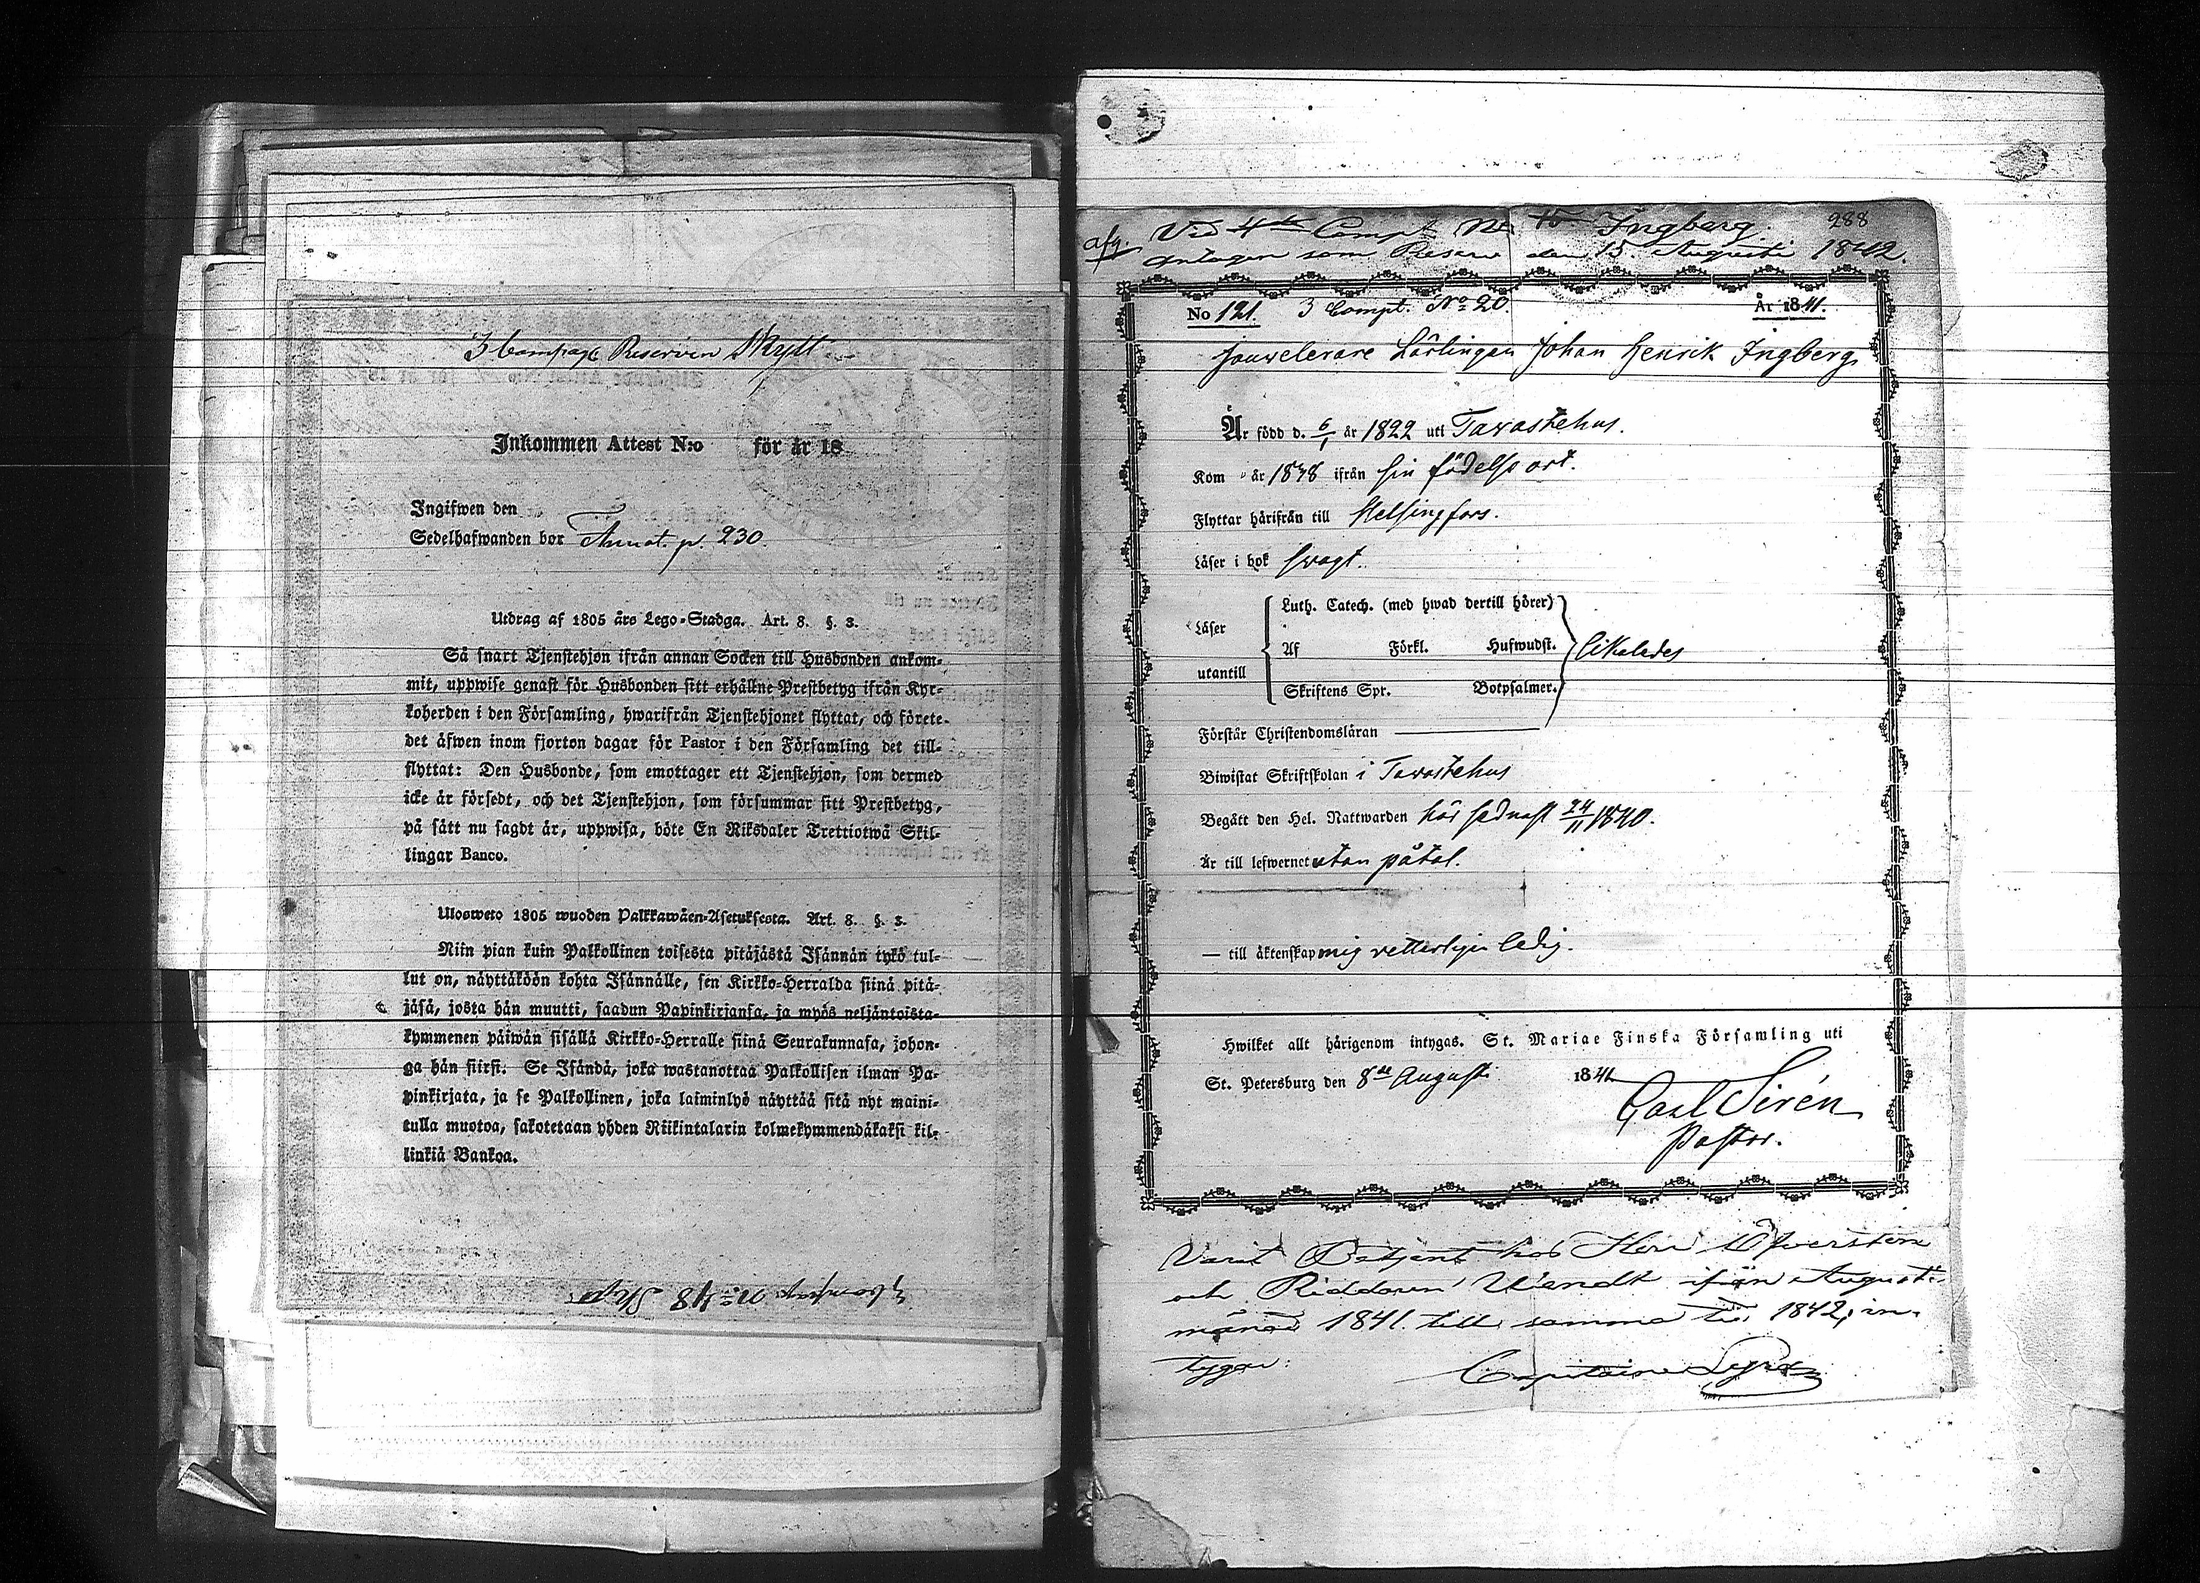 3 Compagi Reserven Skytt
Inkommen Attest N:o för år 18
Ingifwen den
Sedelhafwanden bor Annot. p. 230.
Utdrag af 1805 års Lego-Stadga. Art. 8. §. 3.
Så snart Tjenstehjon ifrån annan Socken till Husbonden ankom-
mit, uppwise genast för Husbonden sitt erhållne Prestbetyg ifrån Kyr-
koherden i den Församling, hwarifrån Tjenstehjonet flyttat, och förete-
det äfwen inom fjorton dagar för Pastor i den Församling det till-
flyttat: Den Husbonde, som emottager ett Tjenstehjon, som dermed
icke är försedt, och det Tjenstehjon, som försummar sitt Prestbetyg,
på sätt nu sagdt är, uppwisa, böte En Riksdaler Trettiotwå Skil-
lingar Banco.
Ulosweto 1805 wuoden Palkkawäen-Asetuksesta. Art. 8. §. 3.
Niin pian kuin Palkollinen toisesta pitäjästä Isännän tykö tul-
lut on, näyttäköön kohta Isännälle, sen Kirkko-Herralda siinä pitä-
jäsä, josta hän muutti, saadun Papinkirjansa, ja myös neljäntoista-
kymmenen päiwän sisällä Kirkko-Herralle siinä Seurakunnasa, johon-
ga hän siirsi. Se Isändä, joka wastanottaa Palkollisen ilman Pa-
pinkirjata, ja se Palkollinen, joka laiminlyö näyttää sitä nyt maini-
tulla muotoa, sakotetaan yhden Riikintalarin kolmekymmendäkaksi kil-
linkiä Bankoa.
3 Compagi No 48
288
afg. Vid 4de Compt No Ingberg.
antagen som Reserv den 15 Augusti 1842.
No 121. 3 Compt. No 20. År 1841.
Jouvelerare Lärlingen Johan Henrik Ingberg
Är född d. 6/1 år 1822 uti Tavastehus.
Kom " år 1838 ifrån sin födelse ort.
Flyttar härifrån till Helsingfors.
Läser i bok svagt.
Luth. Catech. (med hwad dertill hörer)
Läser
Af Förkl. Hufwudst. likaledes
utantill
Skriftens Spr. Botpsalmer.
Förstår Christendomsläran
Biwistat Skriftskolan i Tavastehus
Begått den Hel. Nattwarden här sednast 24/11 1840.
Är till lefwernet utan påtal.
— till äktenskap mig vetterligen ledig.
Hwilket allt härigenom intygas. St. Mariae Finska Församling uti
St. Petersburg den 8de Augusti 1841.
Carl Sirén
Pastor.
Varit Betjent hos Herr Öfversten
och Riddaren Wendt ifrån Augusti
månad 1841 till samma tid 1842, in-
tygar:
Capitaine